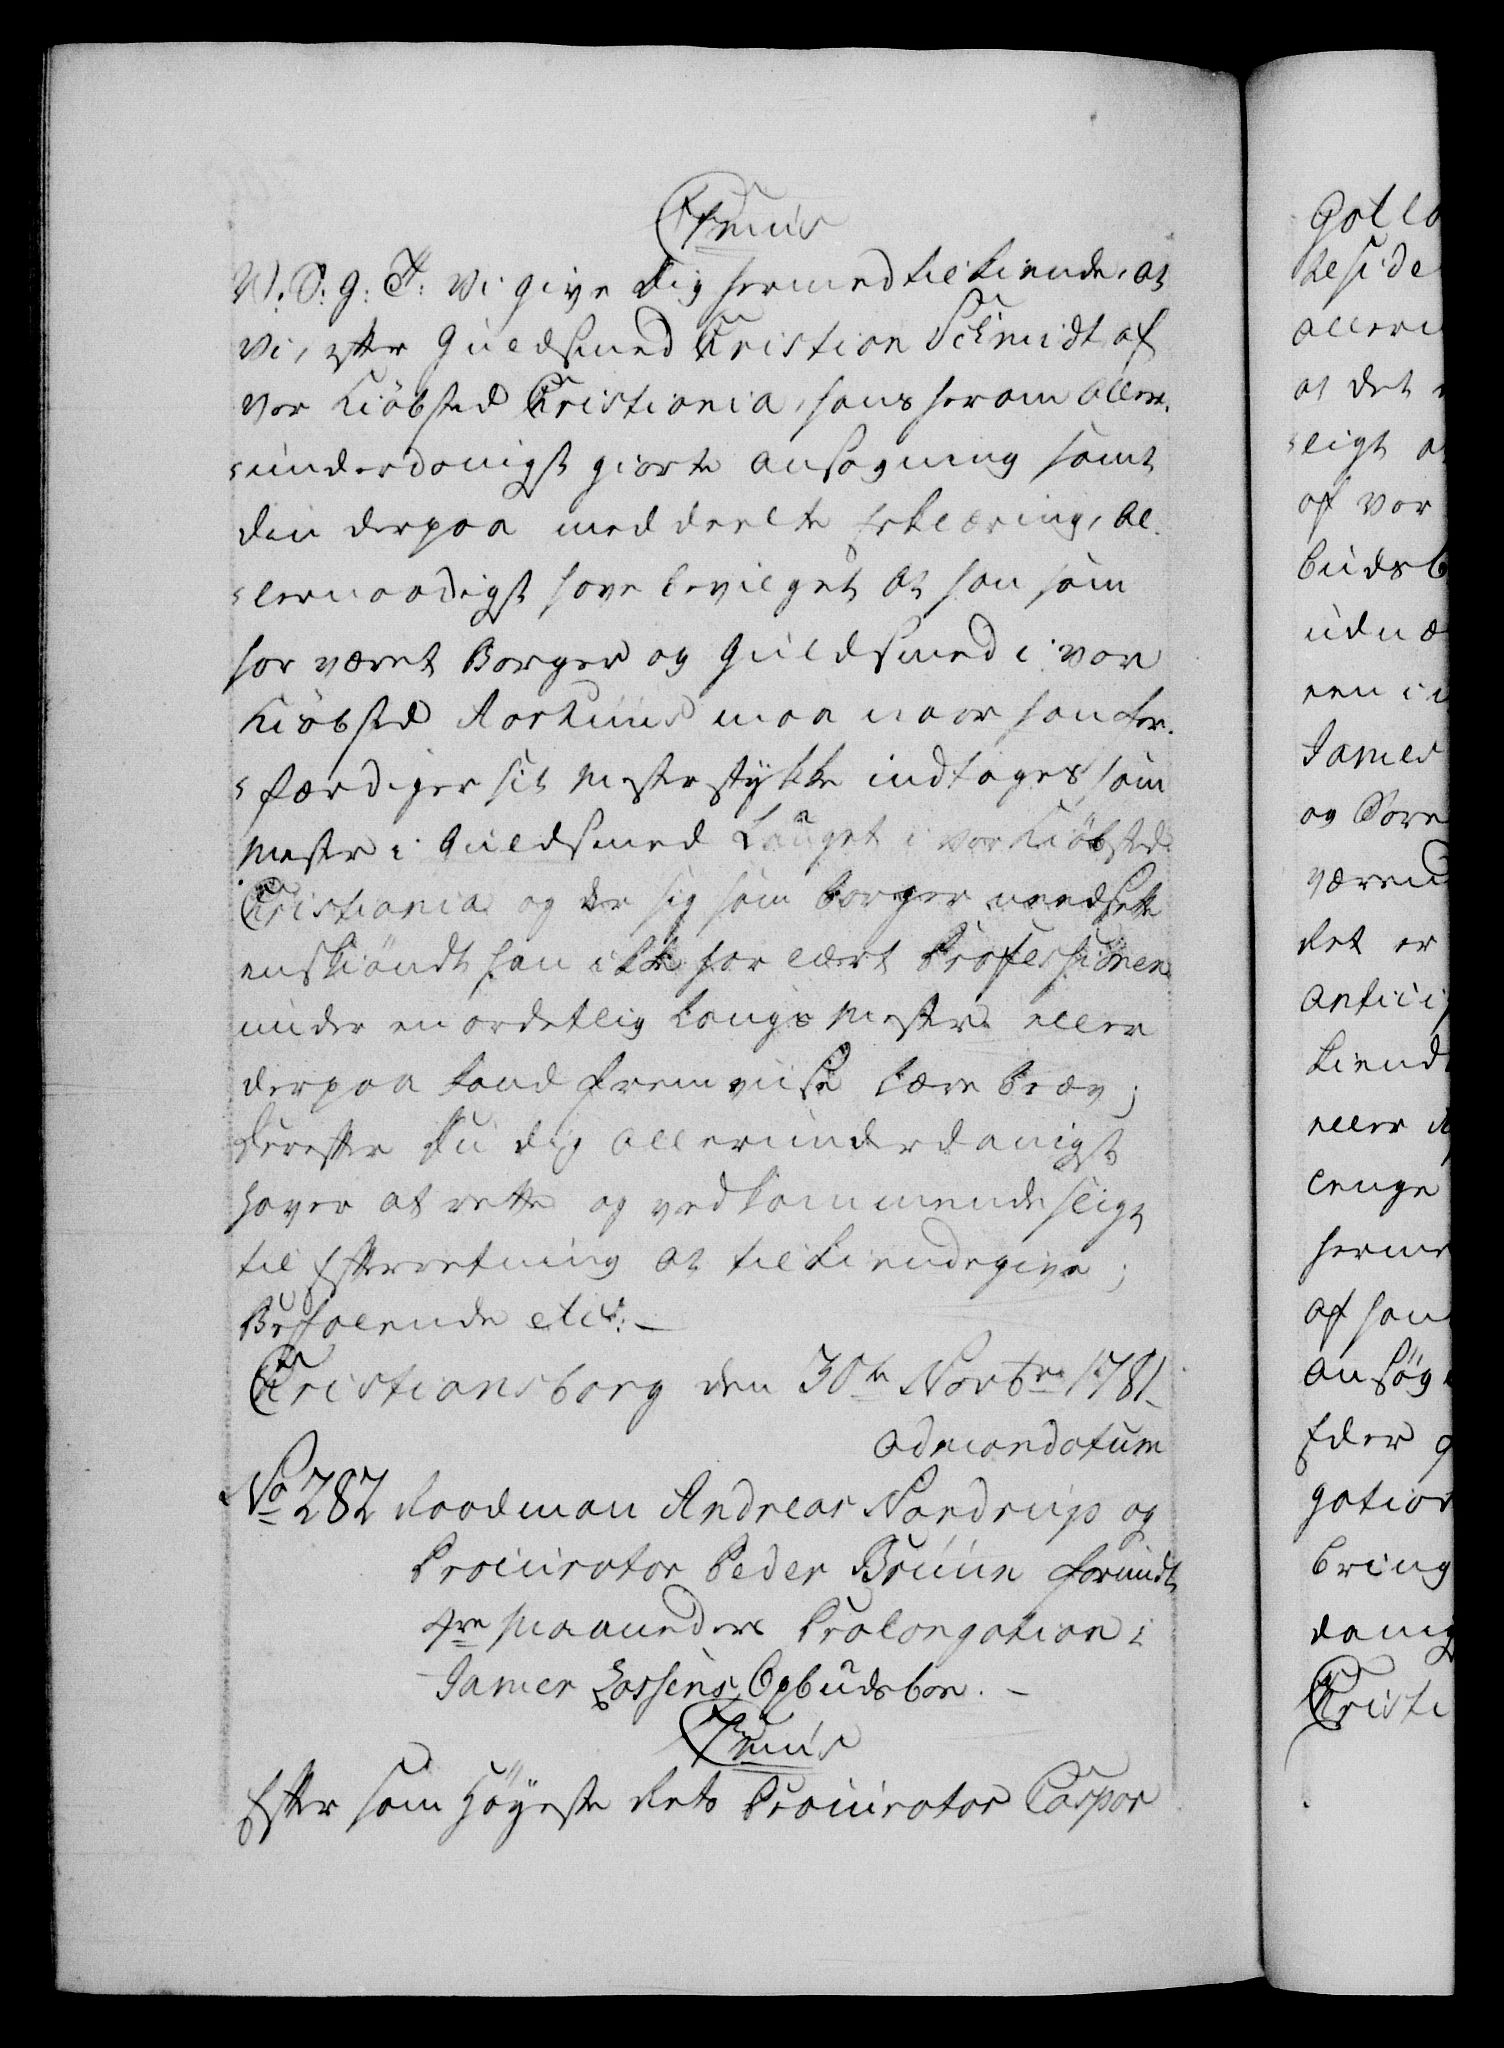 Chr: 7mus
W. S: G: T: Vi give dig hermed tilkiende, at
Vi, efter Guldsmed Christian Schmidt af
vor Kiöbsted Christiania, hans herom aller„
„underdanigst giorte Ansøgning samt
din derpaa meddeelte Erklæring, Al„
„lernaadigst have bevilget at han som
har været Borger og Guldsmed i vor
Kiöbsted Aarhuus maa naar han for„
„færdiger sit Mesterstykke indtages som
Mester i Guldsmed Lauget i vor Kiöbsted
Christiania og der sig som borger nedsette
enskiöndt han ikke har lært Professionen
under en ordetlig Laugs Mester eller
derpaa kand fremviise Lære brev;
Derefter du dig allerunderdanigst
haver at rette og vedkommende sligt
til Efterretning at tilkiendegive;
Befalende etc:
Christiansborg den 30te Novbre 1781
admandatum
No 282 Raadman Andreas Nordrup og
Procurator Peder Bruun forundt
4re Maaneders Prolongation i
James Lassens Opbudsboe.
Chr: 7mus
Efter som Höyeste Rets Procurator Caspar
Gotl
beside
allern
at det
„ligt a
af vor
budsb
udnæ
een i
James
og
væren
det er
antici
kiend
eller
lenge
herme
af han
ansøg
Eder
gation
bring
danig
Christi